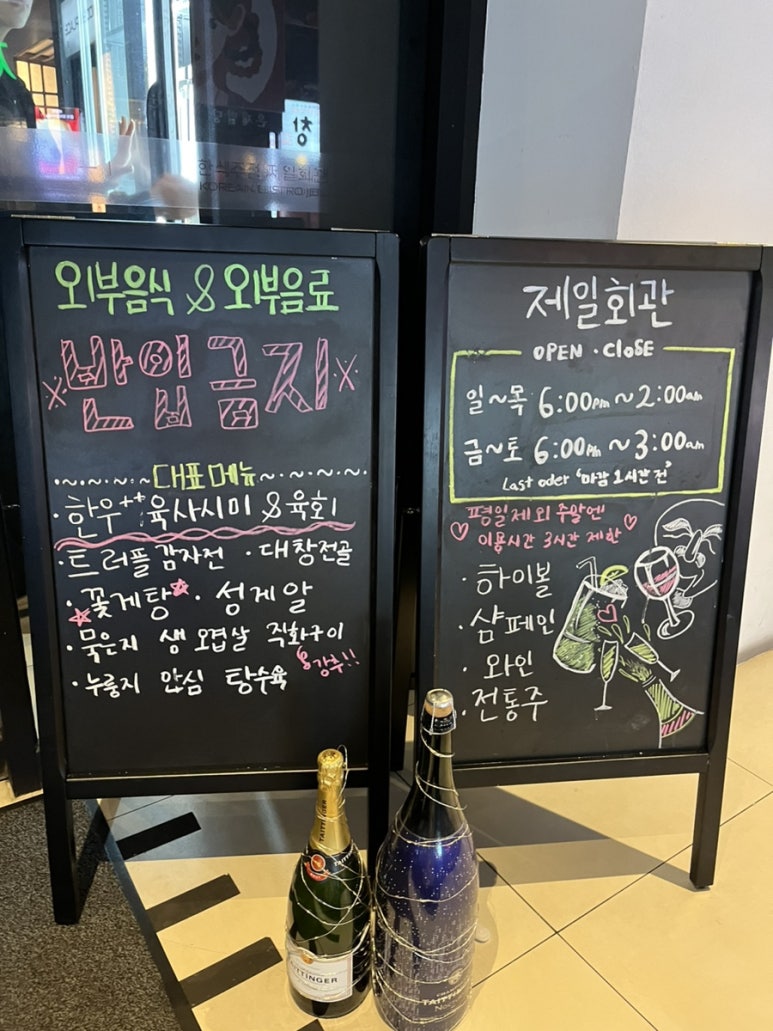 창
한식주점 제일회관
KOREAN BISTRO
외부음식 & 외부음료
반입금지
대표메뉴
· 한우++ 육사시미 & 육회
· 트러플 감자전 · 대창전골
· 꽃게탕 · 성게알
· 묵은지 생 오겹살 직화구이
강추!!
· 누룽지 안심 탕수육
제일회관
OPEN · CLOSE
일~목 6:00pm ~ 2:00am
금~토 6:00pm ~ 3:00am
Last oder "마감 1시간 전"
평일제외 주말엔
이용시간 3시간 제한
· 하이볼
· 샴페인
· 와인
· 전통주
TAITTINGER
TAITTINGER
TAITTINGER